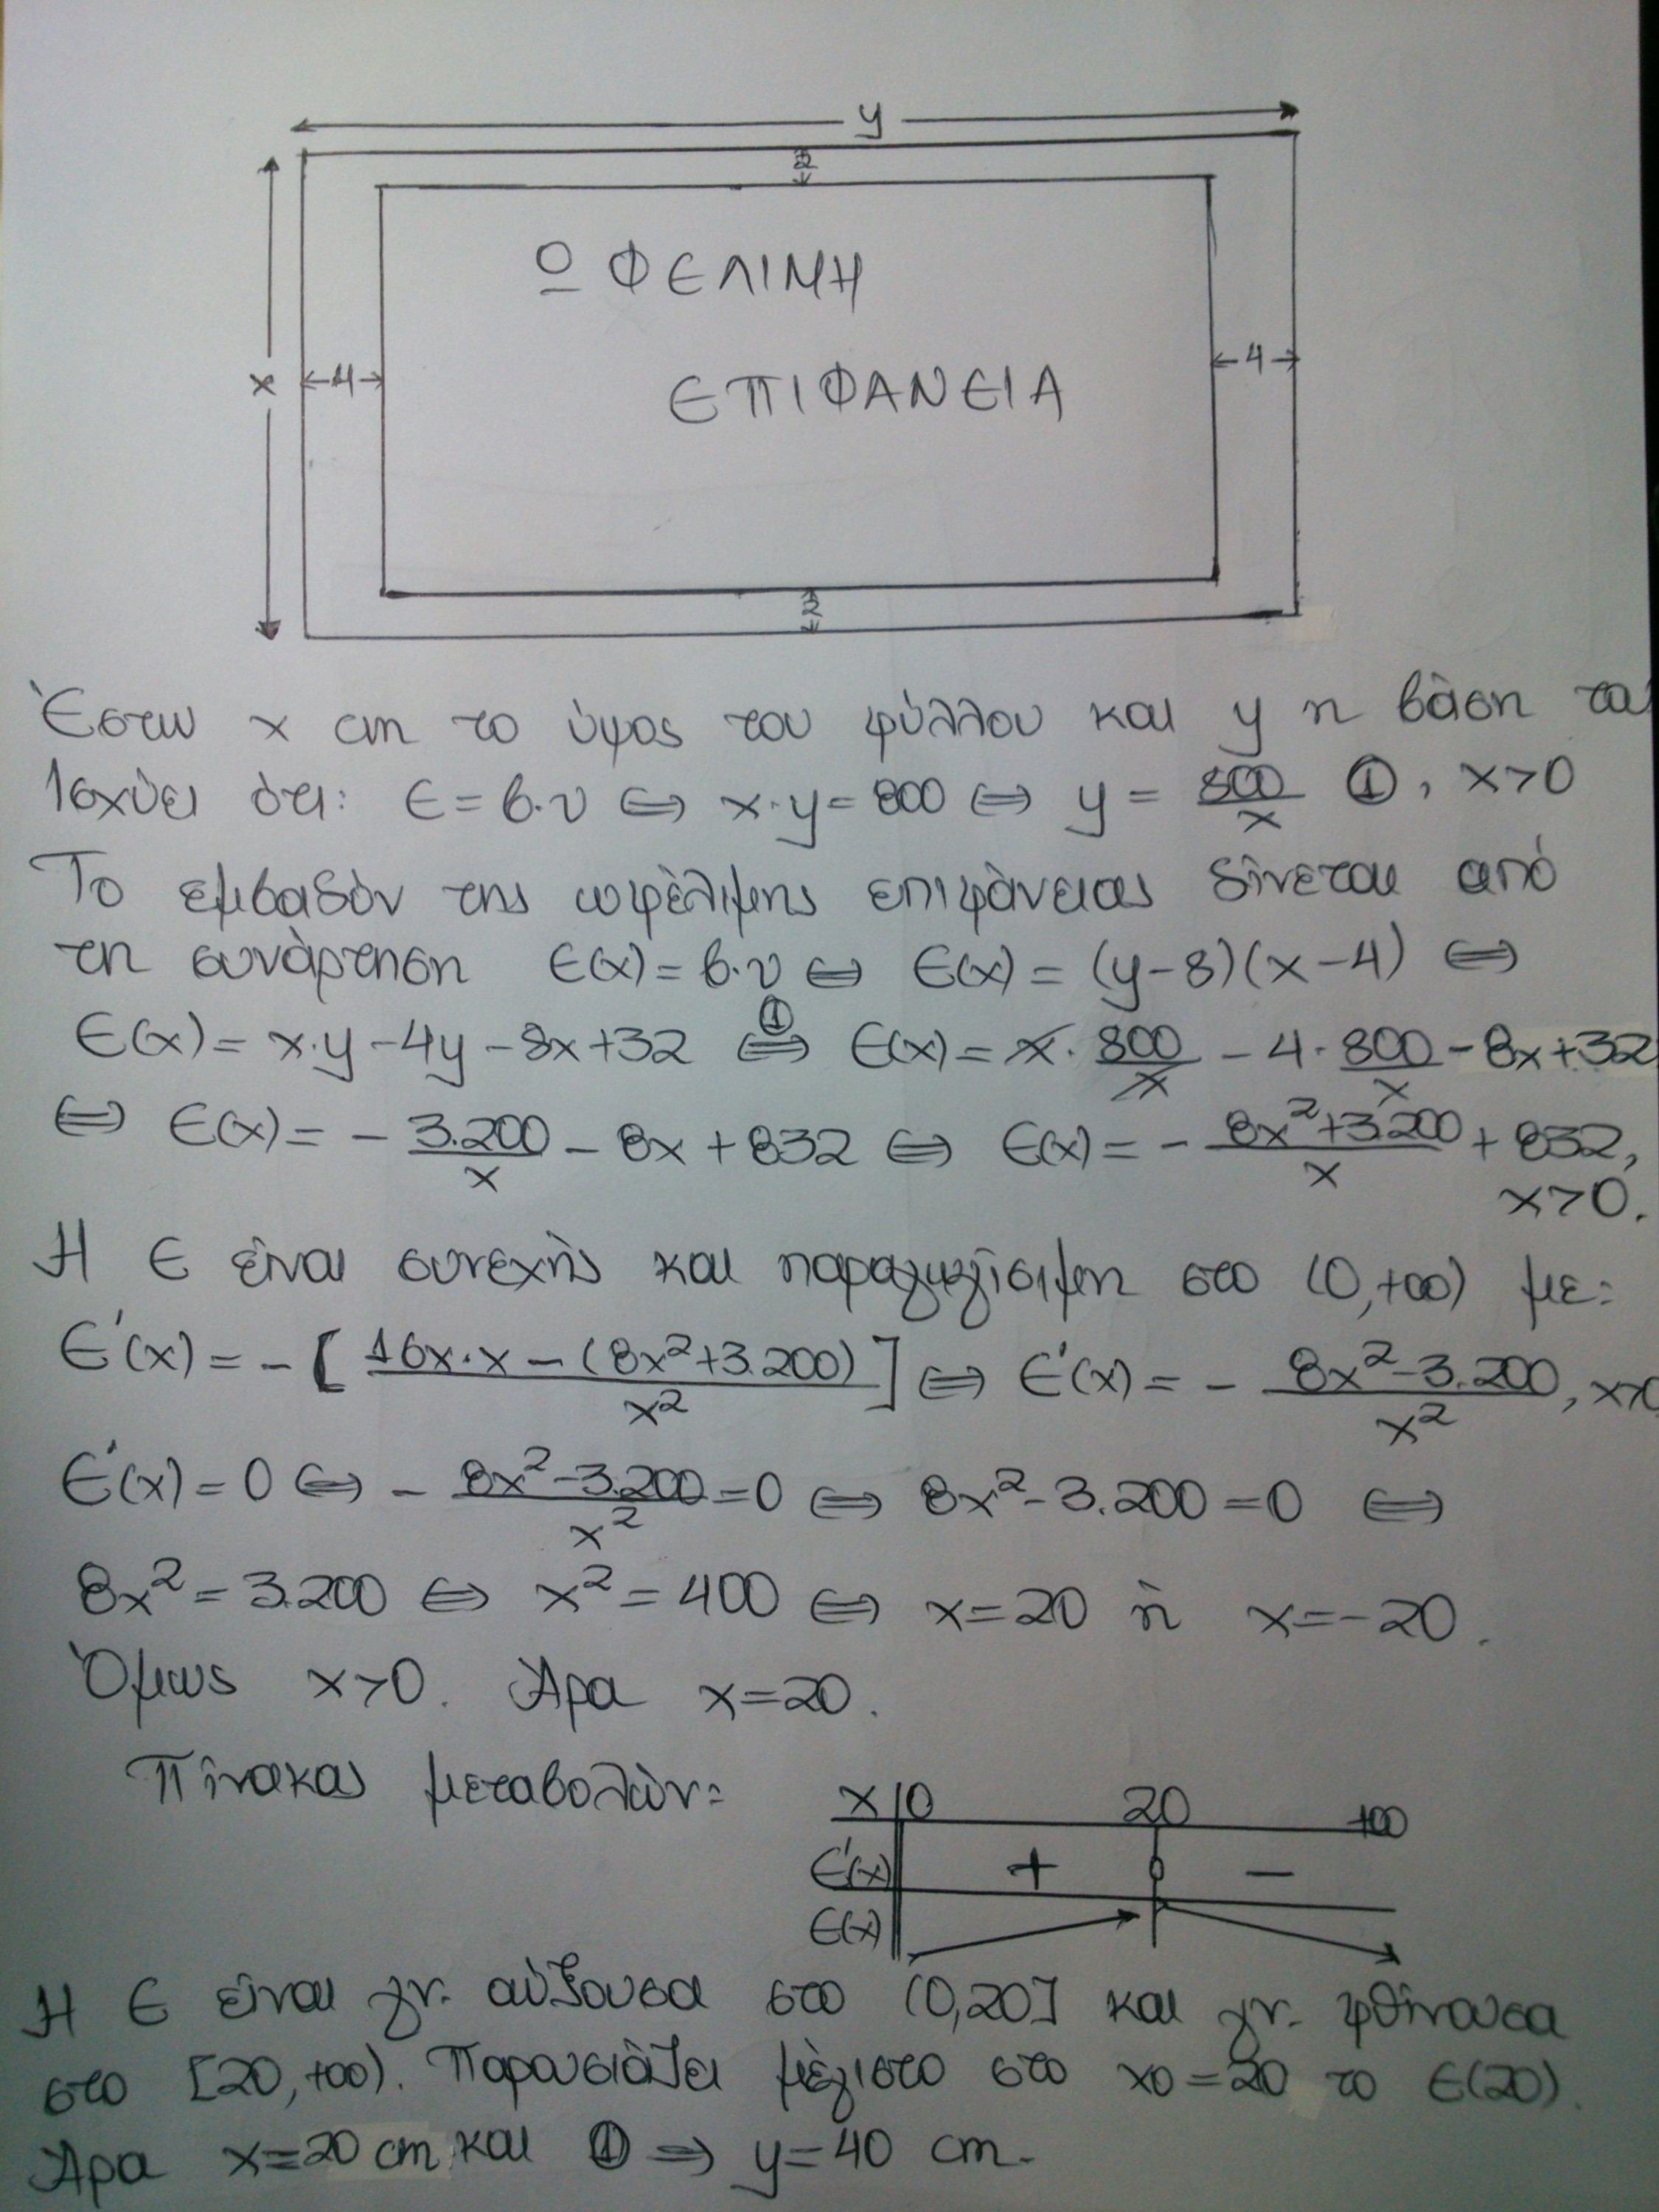 y
2
ΟΦΕΛΙΜΗ
ΕΠΙΦΑΝΕΙΑ
x
4
4
2
Έστω x cm το ύψος του φύλλου και y η βάση του
Ισχύει ότι: Ε = β·υ ⇔ x·y = 800 ⇔ y = 800/x ①, x>0
Το εμβαδόν της ωφέλιμης επιφάνειας δίνεται από
τη συνάρτηση Ε(x) = β·υ ⇔ Ε(x) = (y-8)(x-4) ⇔
Ε(x) = x·y - 4y - 8x + 32 ⇔① Ε(x) = x· 800/x - 4· 800/x - 8x + 32
⇔ Ε(x) = - 3.200/x - 8x + 832 ⇔ Ε(x) = - (8x²+3.200)/x + 832,
x>0.
Η Ε είναι συνεχής και παραγωγίσιμη στο (0,+∞) με:
Ε'(x) = - [ (16x·x - (8x²+3.200))/x² ] ⇔ Ε'(x) = - (8x²-3.200)/x², x>0
Ε'(x) = 0 ⇔ - (8x²-3.200)/x² = 0 ⇔ 8x²-3.200 = 0 ⇔
8x² = 3.200 ⇔ x² = 400 ⇔ x = 20 ή x = -20.
Όμως x>0. Άρα x = 20.
Πίνακας μεταβολών:
x 0 20 +∞
Ε'(x) + 0 -
Ε(x)
Η Ε είναι γν. αύξουσα στο (0,20] και γν. φθίνουσα
στο [20,+∞). Παρουσιάζει μέγιστο στο x0 = 20 το Ε(20).
Άρα x = 20 cm και ① ⇒ y = 40 cm.